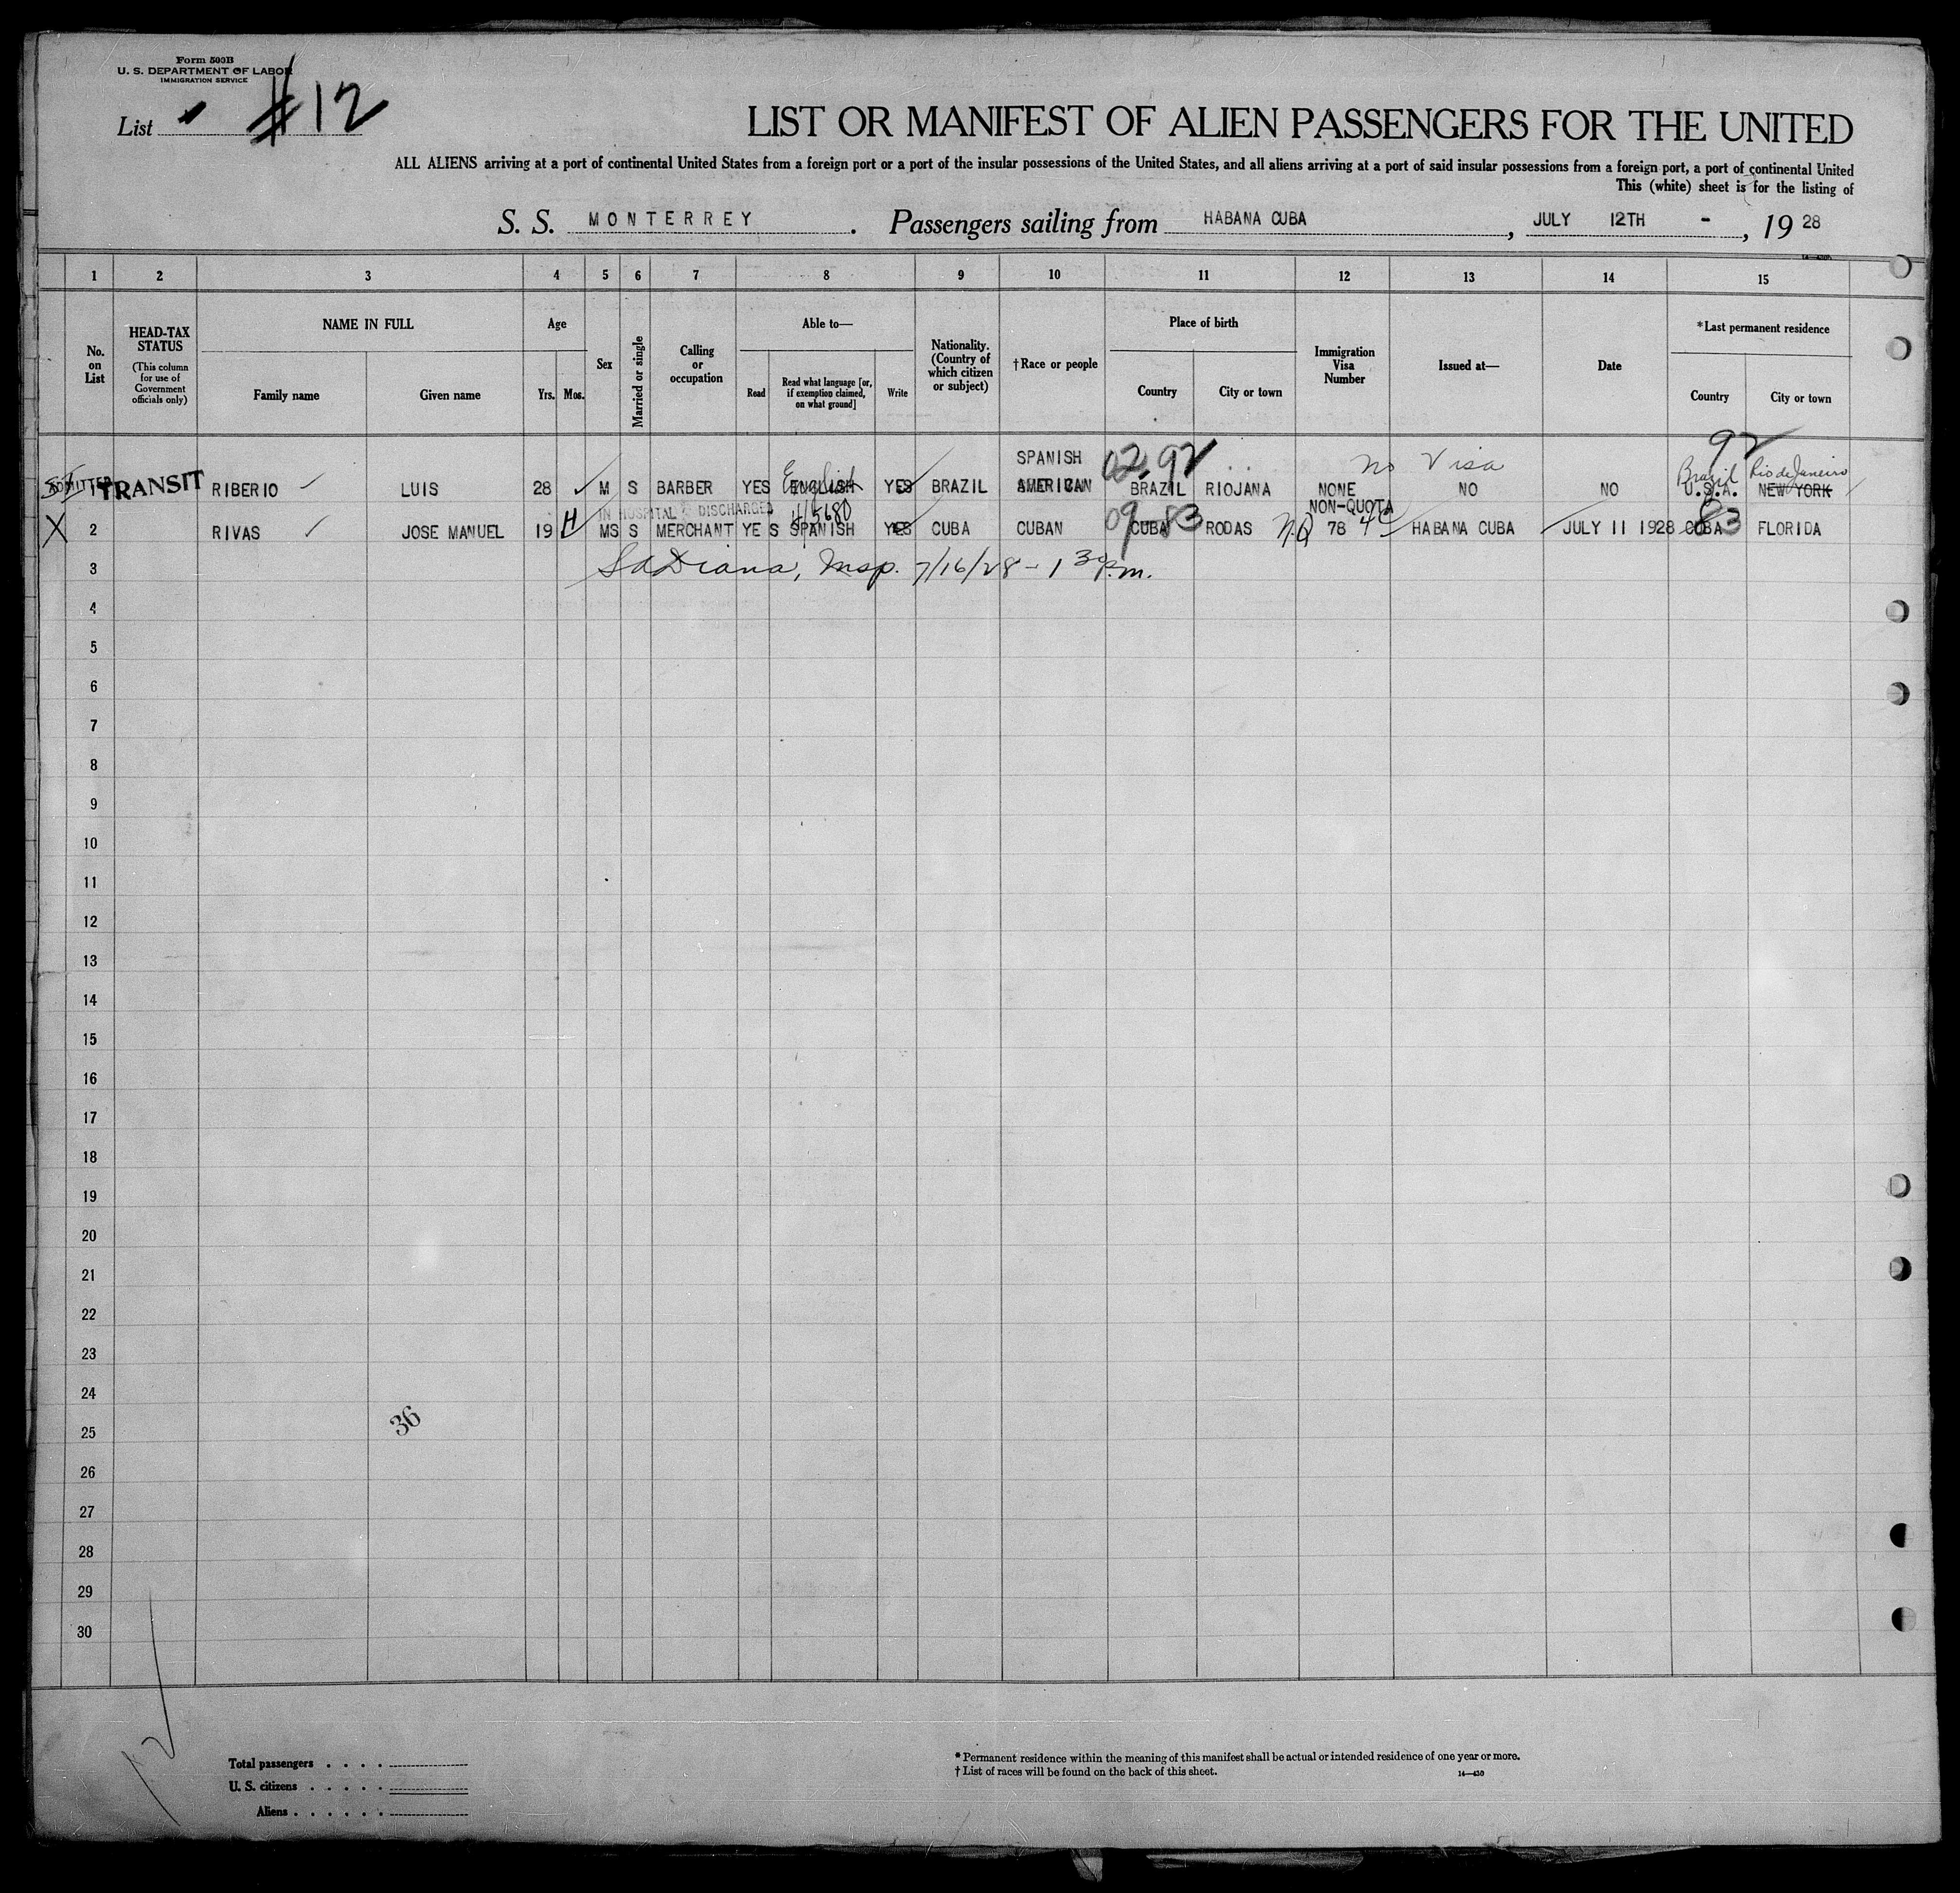 Form 500B
U. S. DEPARTMENT OF LABOR
IMMIGRATION SERVICE
List #12
LIST OR MANIFEST OF ALIEN PASSENGERS FOR THE UNITED
ALL ALIENS arriving at a port of continental United States from a foreign port or a port of the insular possessions of the United States, and all aliens arriving at a port of said insular possessions from a foreign port, a port of continental United
This (white) sheet is for the listing of
S. S. MONTERREY . Passengers sailing from HABANA CUBA , JULY 12TH - , 19 28
1 2 3 4 5 6 7 8 9 10 11 12 13 14 15
No. on List
HEAD-TAX STATUS
(This column for use of Government officials only)
NAME IN FULL
Family name Given name
Age
Yrs. Mos.
Sex
Married or single
Calling or occupation
Able to—
Read
Read what language [or, if exemption claimed, on what ground]
Write
Nationality. (Country of which citizen or subject)
†Race or people
Place of birth
Country City or town
Immigration Visa Number
Issued at—
Date
*Last permanent residence
Country City or town
92
SPANISH 02,92 No Visa Brazil Rio de Janeiro
ADMITTED 1 TRANSIT RIBERIO LUIS 28 M S BARBER YES ENGLISH English YES BRAZIL AMERICAN BRAZIL RIOJANA NONE NO NO U.S.A. NEW YORK
IN HOSPITAL DISCHARGED 4/5680 NON-QUOTA
X 2 RIVAS JOSE MANUEL 19 H MS S MERCHANT YE S SPANISH YES CUBA CUBAN 09-83 CUBA RODAS N.Q 78 4c HABANA CUBA JULY 11 1928 CUBA 83 FLORIDA
3 Diana, Insp. 7/16/28 - 1 30 p.m.
4
5
6
7
8
9
10
11
12
13
14
15
16
17
18
19
20
21
22
23
24
25
36
26
27
28
29
30
12
Total passengers . . . .
U. S. citizens . . . . .
Aliens . . . . . .
* Permanent residence within the meaning of this manifest shall be actual or intended residence of one year or more.
† List of races will be found on the back of this sheet.
14—430